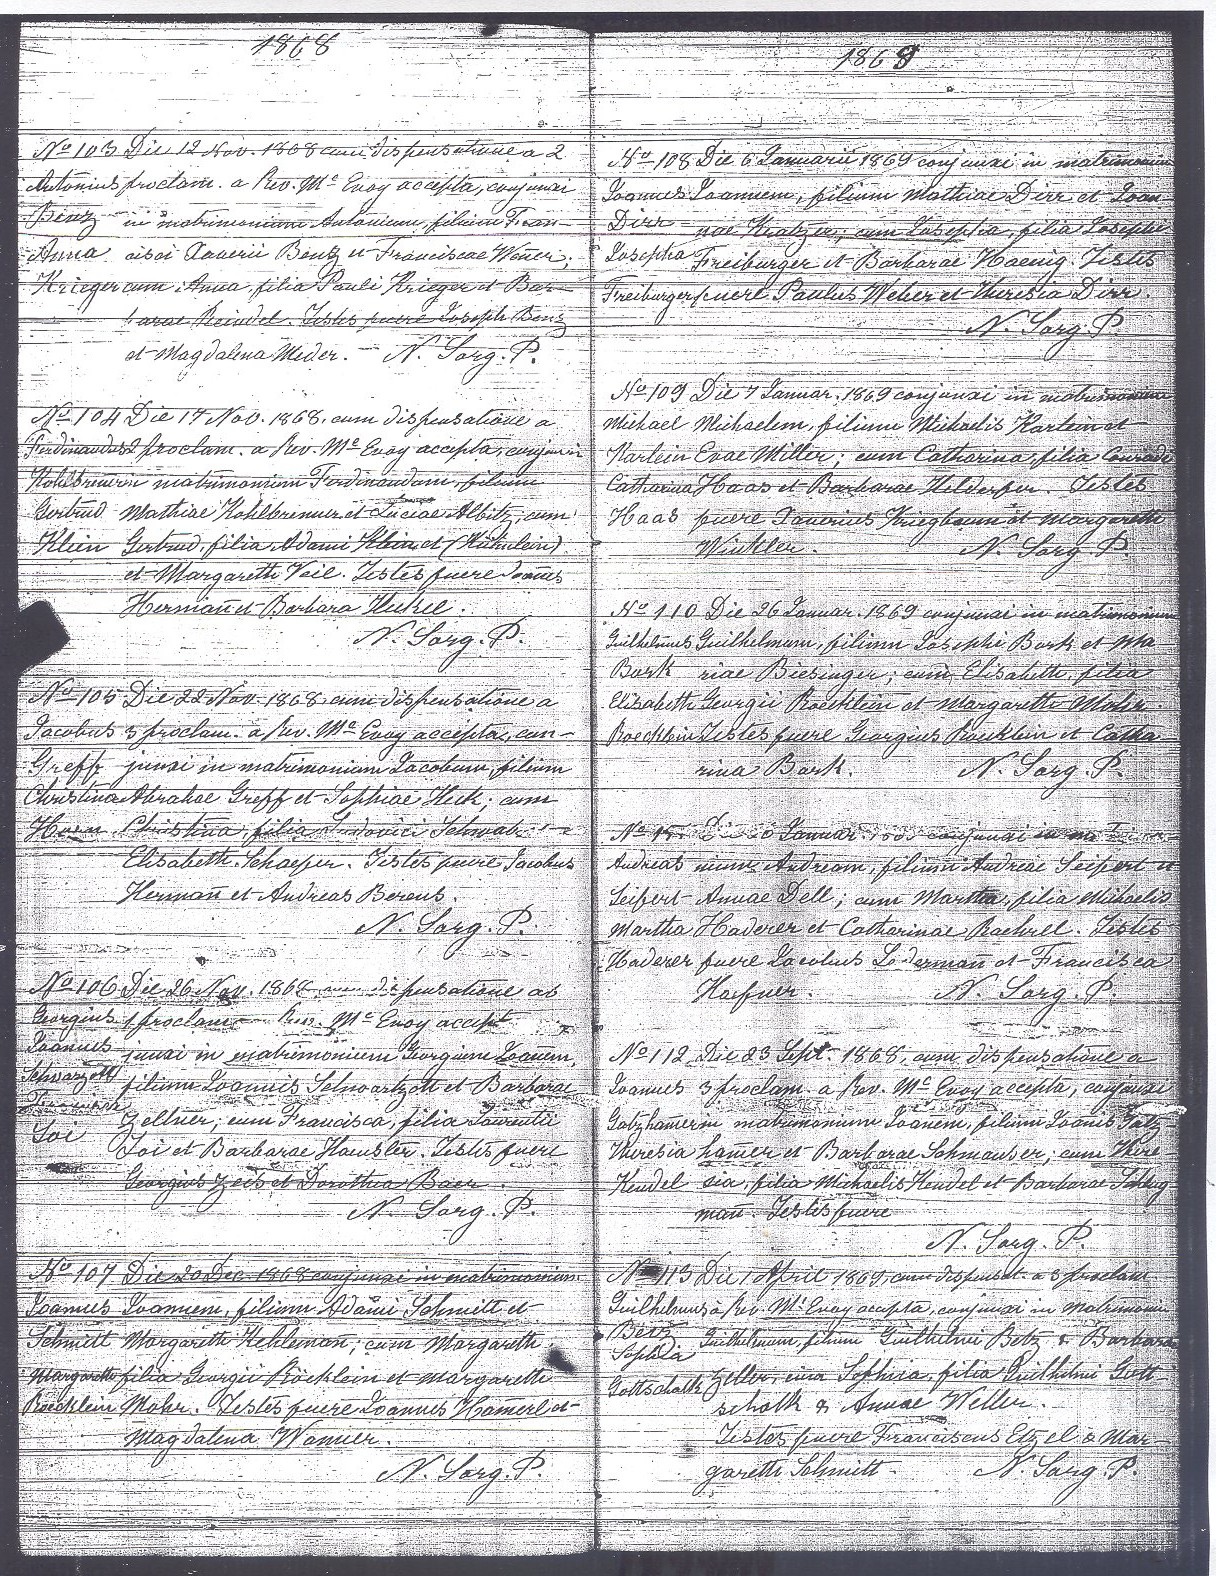 1868
No 103 Die 12 Nov. 1868 cum dispensatione a 2
Antonius proclam. a Rev. Mc Evoy accepta, conjunxi
Benz in matrimonium Antonium, filium Fran-
Anna cisci Xaverii Benz et Franciscae Wener;
Krieger cum Anna, filia Pauli Krieger et Bar-
barae Reindel. Testes fuere Joseph Benz
et Magdalena Meder. — N. Sorg. P.
No 104 Die 17 Nov. 1868. cum dispensatione a
Ferdinandus 2 proclam. a Rev. Mc Evoy accepta, conjunxi
Kohlbrenner in matrimonium Ferdinandum, filium
Gertrud Mathiae Kohlbrenner et Luciae Albitz, cum
Klein Gertrud, filia Adami Klein et (Hütnlein)
et Margareth Veil. Testes fuere Joannes
Hermañ et Barbara Heckel.
N. Sorg. P.
No 105 Die 22 Nov. 1868 cum dispensatione a
Jacobus 3 proclam. a Rev. Mc Evoy accepta, con-
Greff junxi in matrimonium Jacobum, filium
Christina Abrahae Greff et Sophiae Heck; cum
Christina, filia Ludovici Schwab et
Elisabeth Schaefer. Testes fuere Jacobus
Hermañ et Andreas Berens.
N. Sorg. P.
No 106 Die 26 Nov. 1868 cum dispensatione ab
Georgius 1 proclam. Rev. Mc Evoy accept
Joannes junxi in matrimonium Georgium Joanem,
Schwarzott filium Joannis Schwartzott et Barbarae
Zellner, cum Francisca, filia Laurentii
Loi Loi et Barbarae Haeusler. Testes fuere
Georgius Zeis et Dorothea Baer.
N. Sorg. P.
No 107 Die 20 Dec. 1868 conjunxi in matrimonium
Joannes Joannem, filium Adami Schmitt et
Schmitt Margareth Kehlemañ; cum Margareth
Margareth filia Georgii Röcklein et Margareth
Roecklein Mohr. Testes fuere Joannes Hamerl et
Magdalena Wamier.
N. Sorg. P.
1869
No 108 Die 6 Januarii 1869 conjunxi in matrimonium
Joannes Joannem, filium Mathiae Dirr et Joan-
Dirr nae Kratzer; cum Josepha, filia Josephi
Josepha Freiburger et Barbarae Haenig. Testes
Freiburger fuere Paulus Weber et Theresia Dirr.
N. Sorg. P.
No 109 Die 7 Januar. 1869 conjunxi in matrimonium
Michael Michaelem, filium Michaelis Karlein et
Karlein Evae Miller; cum Catharina, filia Conradi
Catharina Haas et Barbarae Helderfer. Testes
Haas fuere Xaverius Kriegbaum et Margareth
Winkler. N. Sorg. P.
No 110 Die 26 Januar. 1869 conjunxi in matrimonium
Guilhelmus Guilhelmum, filium Josephi Bork et Ma
Bork riae Biesinger; cum Elisabeth, filia
Elisabeth Georgii Roecklein et Margareth Mohr.
Roecklein Testes fuere Georgius Roecklein et Catha
rina Bork. N. Sorg. P.
Januar conjunxi in
Andreas nium Andream, filium Andreae Seifert et
Seifert Annae Dell; cum Martha, filia Michaelis
Martha Haderer et Catharinae Raehrel. Testes
Haderer fuere Jacobus Lodermañ et Francisca
Haefner. N. Sorg. P.
No 112 Die 23 Sept. 1868, cum dispensatione a
Joannes 3 proclam. a Rev. Mc Evoy accepta, conjunxi
Gotzhamer in matrimonium Joanem, filium Joanis Gotz-
Theresia hamer et Barbarae Schmauser; cum There
Hendel sia, filia Michaelis Hendel et Barbarae
mañ. Testes fuere
N. Sorg. P.
No 113 Die 1 April 1869, cum dispensat. a 3 proclam
Guilhelmus a Rev. Mc Evoy accepta, conjunxi in matrimonium
Betz Guilhelmum, filium Guilhelmi Betz & Barbara
Sophia
Gottschalk Zeller, cum Sophia, filia Guilhelmi Gott
schalk & Annae Weller.
Testes fuere Franciscus Etzel & Mar-
gareth Schmitt. N. Sorg. P.